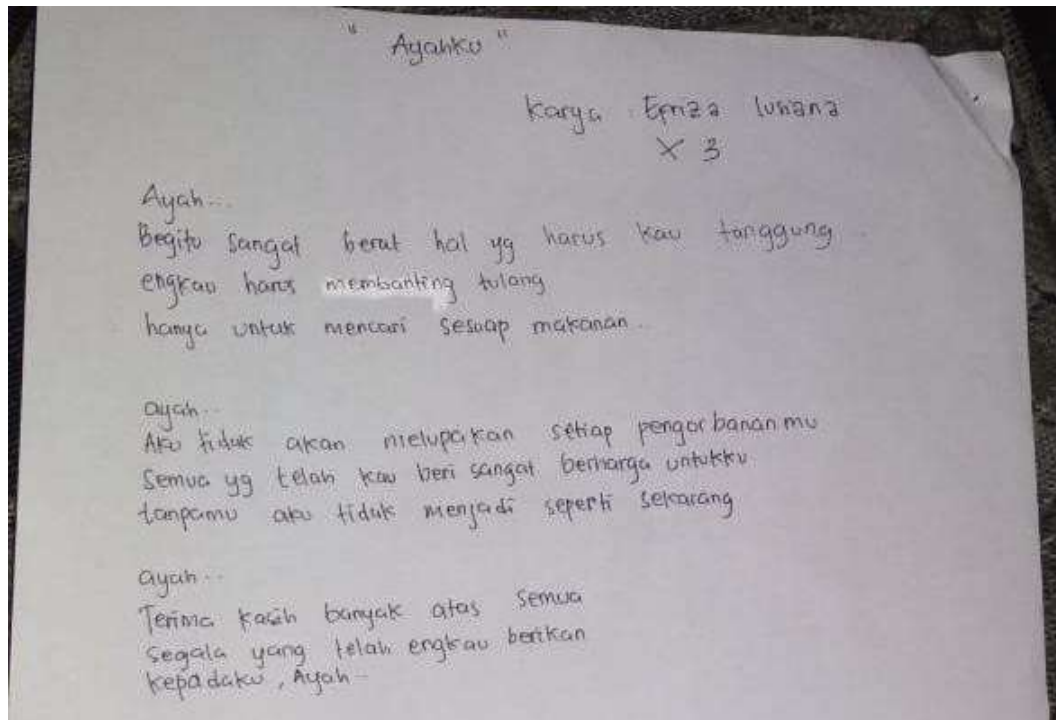 " Ayahku "
Karya : Efriza lusiana
X 3
Ayah...
Begitu sangat berat hal yg harus kau tanggung.
engkau harus membanting tulang
hanya untuk mencari sesuap makanan..
ayah..
Aku tidak akan melupakan setiap pengorbananmu
Semua yg telah kau beri sangat berharga untukku
tanpamu aku tidak menjadi seperti sekarang
ayah..
Terima kasih banyak atas semua
segala yang telah engkau berikan
kepadaku, Ayah..